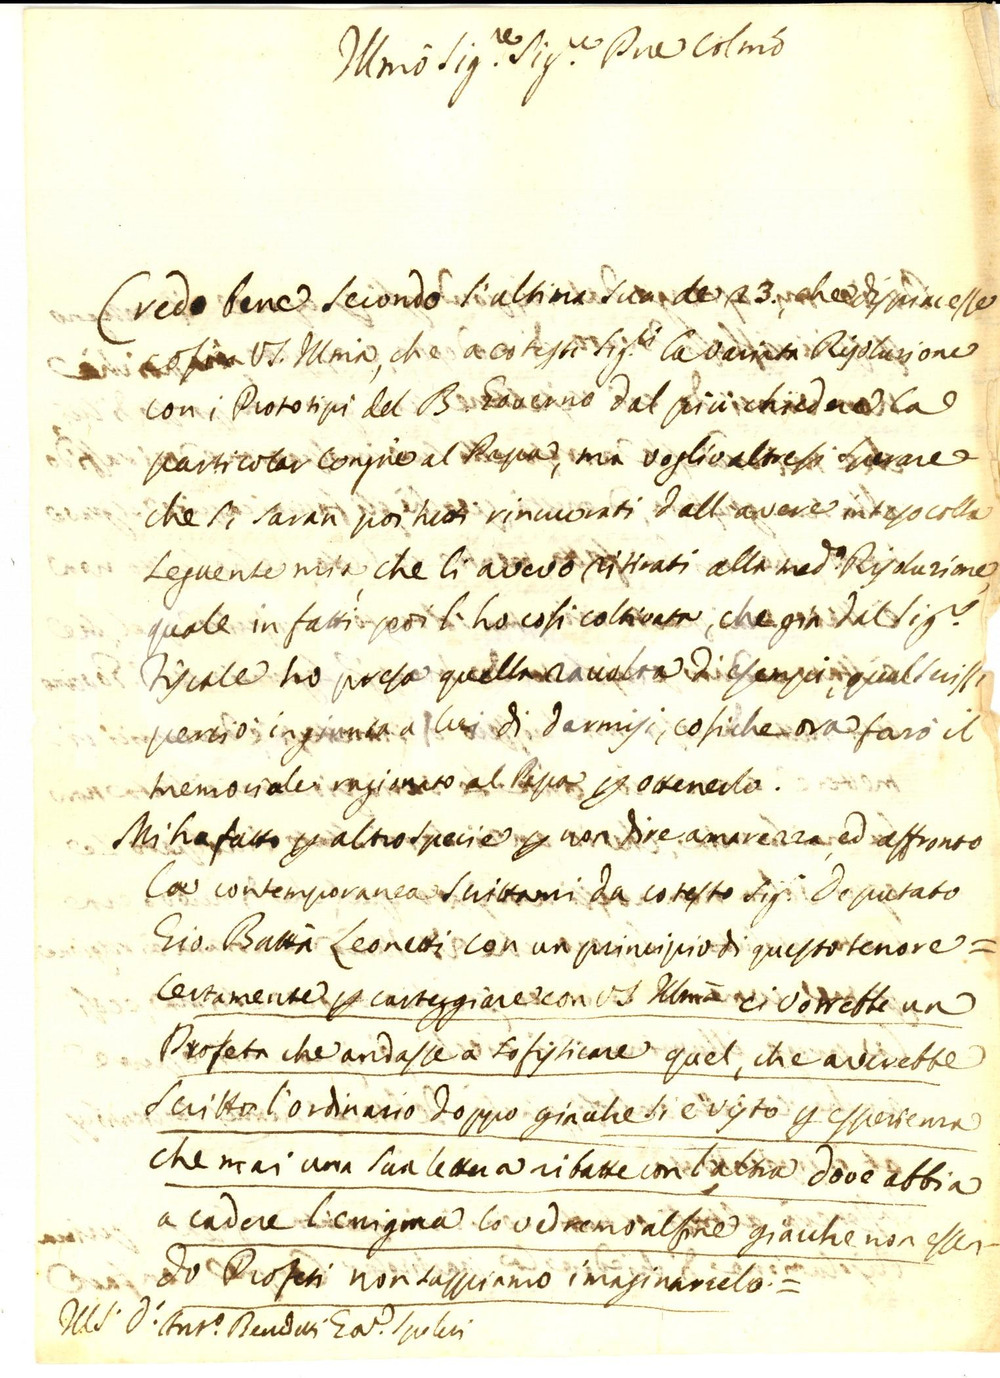 Illmo Sig.re Sig.re Pne Colmo
Credo bene secondo l'ultima sua de 23., che dispiacesse
costì VS. Illma, che a cotesti Sig.ri la variata Risoluzione
con i Prototipi del B. Governo dal più chiedere la
particolar Congne al Papa, ma voglio altresi sperare
che si saran poi tutti rincuorati dall avere inteso colla
seguente mia, che li avevo ritirati alla med.a Risoluzione,
quale in fatti poi l'ho così coltivata, che già dal Sig.r
Fiscale ho presa quella raccolta di esempi, qual scrissi
perciò ingiunta a lui di darmisi, cosiche ora farò il
memoriale ragionato al Papa p ottenerlo.
Mi ha fatto p altro specie p non dire amarezza, ed affronto
la contemporanea scrittami da cotesto Sig.r Deputato
Gio. Batta Leonetti con un principio di questo tenore =
Certamente p carteggiare con VS Illma ci vorrebbe un
Profeta che andasse a sofisticare quel, che averebbe
scritto l'ordinario doppo giache si è visto p esperienza
che mai una sua lettera ribatte con l'altra dove abbia
a cadere l'enigma lo vedremo alfine giacche non essen-
do Profeti non sappiamo imaginarcelo. =
Ant.o Benduti Gov.